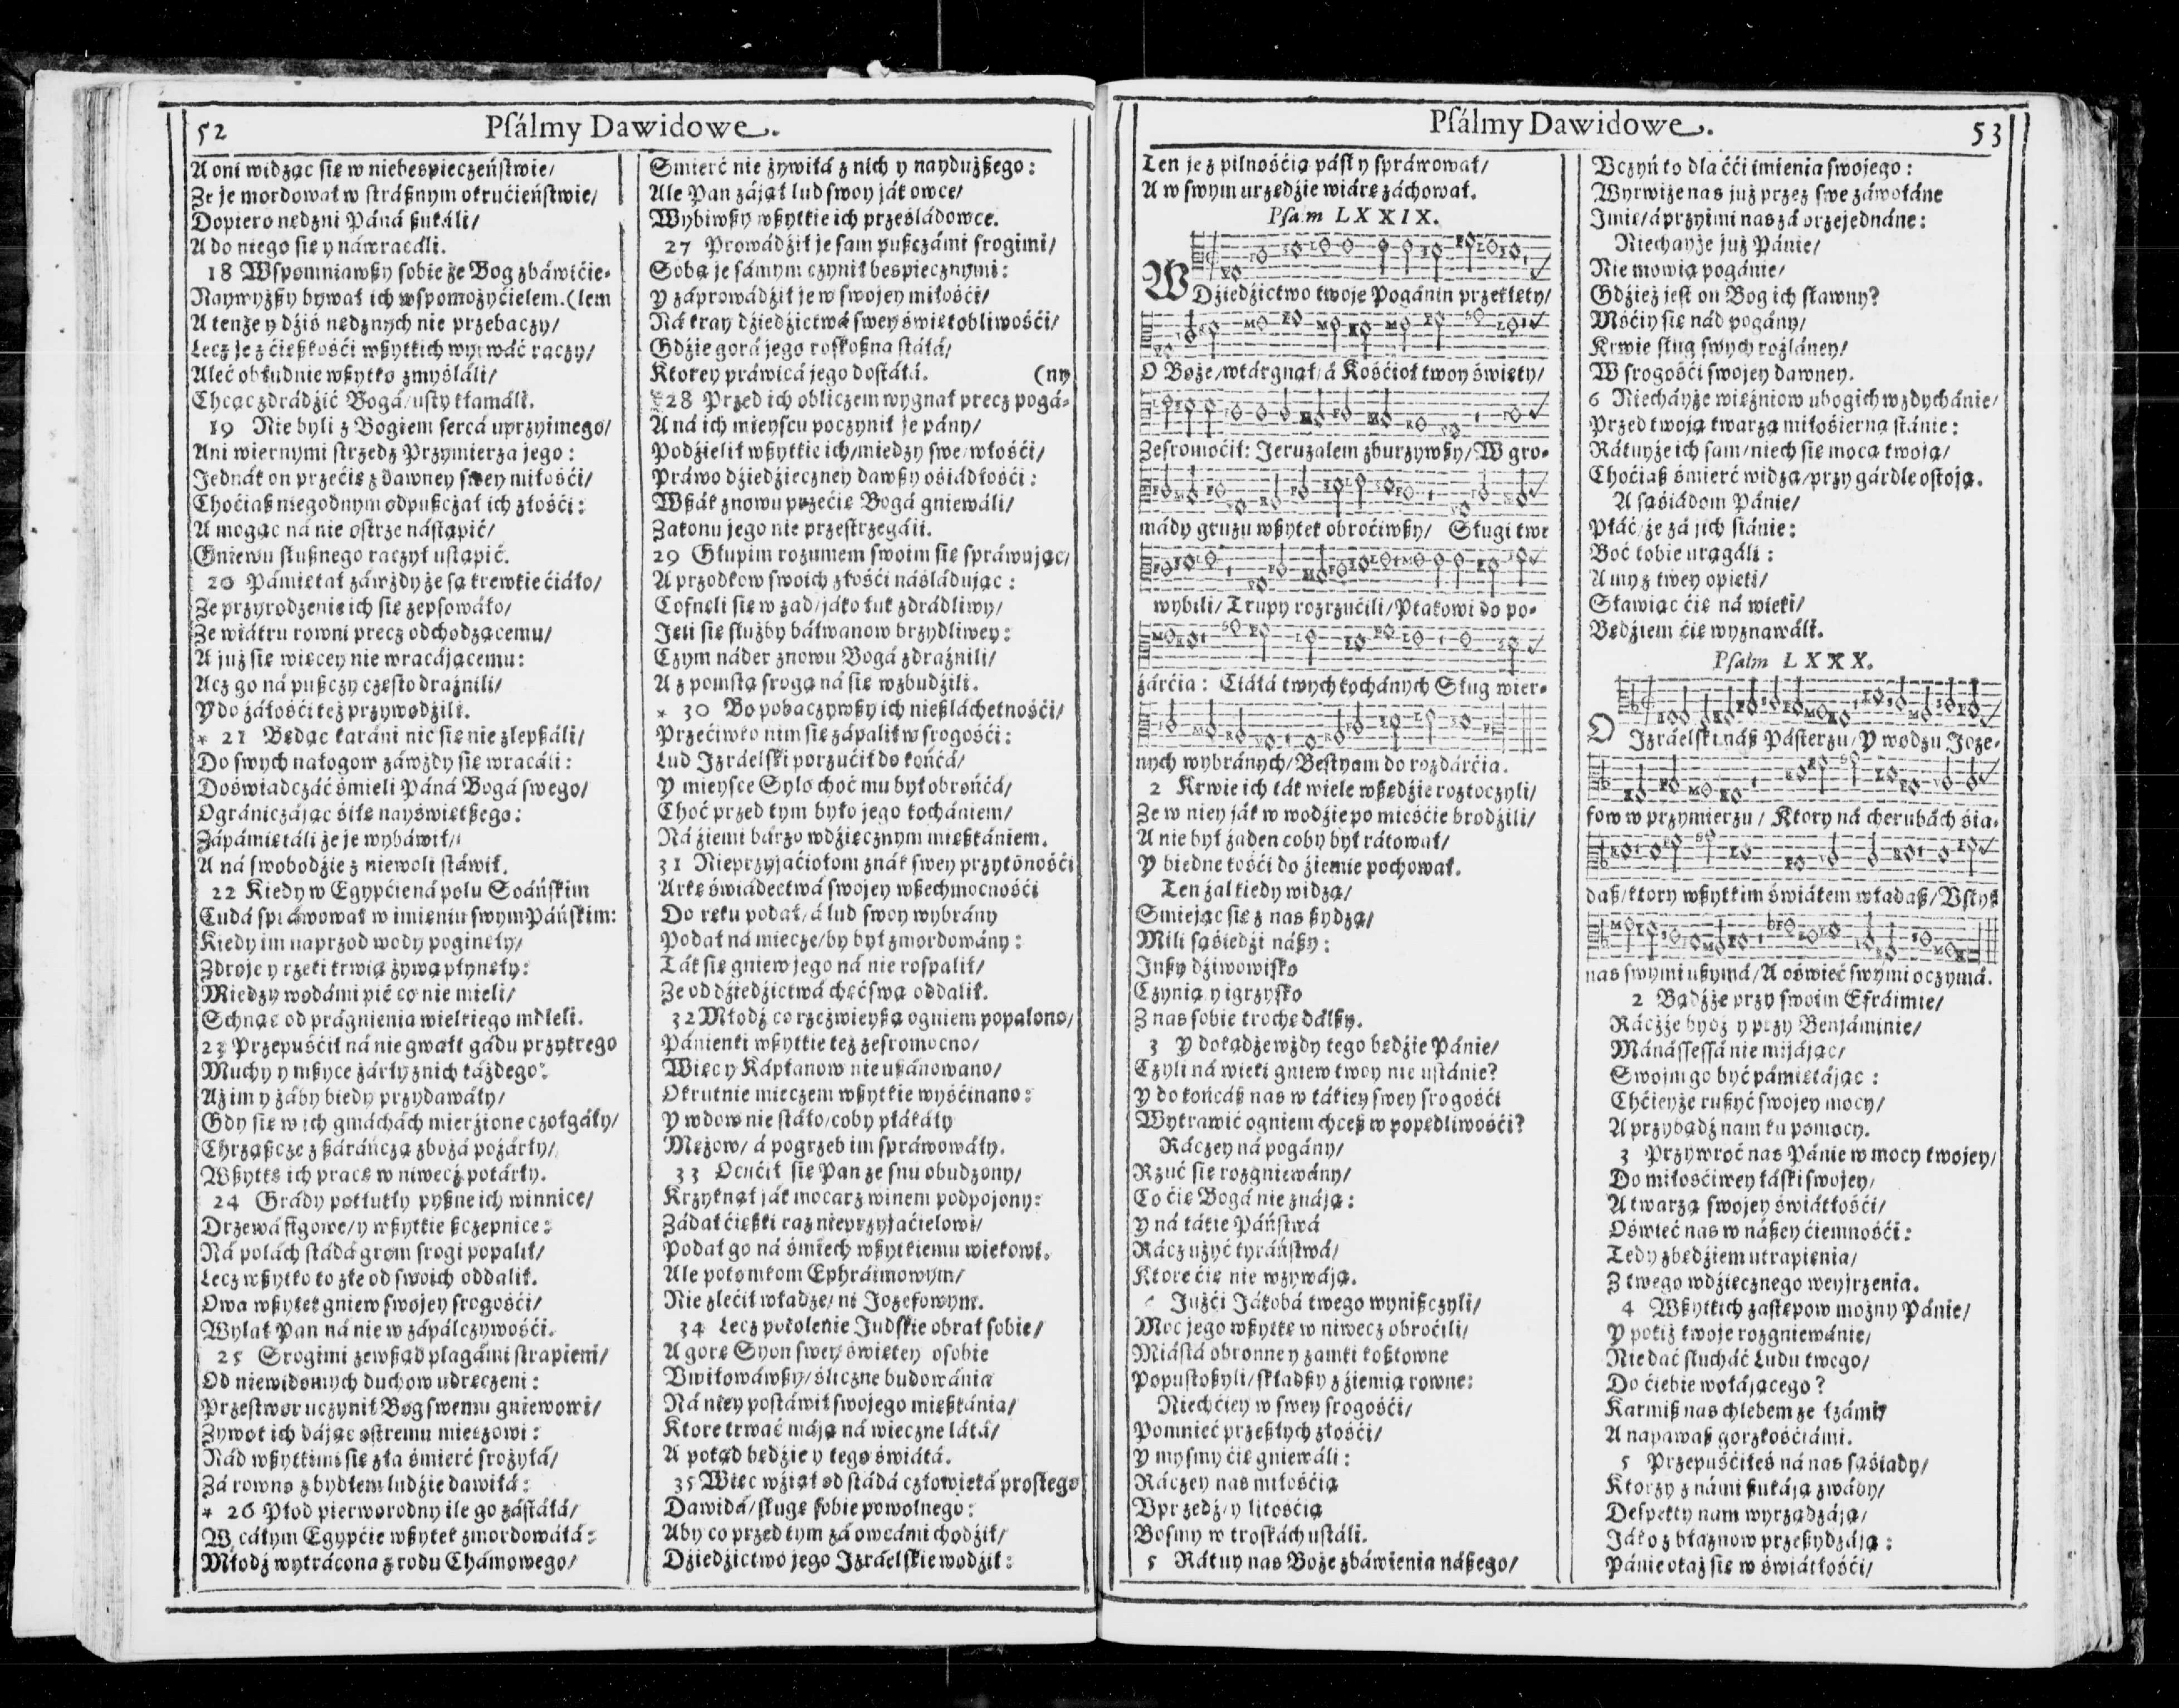 52
Psálmy Dawidowe.
A oni widząc się w niebespieczeństwie/
Ze je mordował w strásznym okrucieństwie/
Dopiero nędzni Páná szukáli/
A do niego się y náwracáli.
18 Wspomniawszy sobie że Bog zbáwićie-
Naywyższy bywał ich wspomożyćielem. (lem
A tenże y dźiś nędznych nie przebaczy/
Lecz je z ćięszkośći wszytkich wyrwáć raczy/
Aleć obłudnie wszytko zmysláli/
Chcąc zdrádźić Bogá/usty kłamáli.
19 Nie byli z Bogiem sercá uprzyimego/
Ani wiernymi strzedz Przymierza jego:
Jednák on przećię z dawney swey miłośći/
Choćiasz niegodnym odpuszczał ich złośći:
A mogąc ná nie ostrze nástąpić/
Gniewu słusznego raczył ustąpić.
20 Pámiętał záwżdy że są krewkie ćiáło/
Ze przyrodzenie ich się zepsowáło/
Ze wiátru rowni precz odchodzącemu/
A już się więcey nie wracájącemu:
Acz go ná puszczy często draźnili/
Y do żáłośći też przywodźili.
* 21 Będąc karáni nic się nie zlepszáli/
Do swych nałogow záwżdy się wracáli:
Doświadczáć śmieli Páná Bogá swego/
Ográniczájąc śiłę nayświętszego:
Zápámiętáli że je wybáwił/
A ná swobodźie z niewoli stáwił.
22 Kiedy w Egypćie ná polu Soáńskim
Cudá spráwował w imieniu swym Páńskim:
Kiedy im naprzod wody poginęły/
Zdroje y rzeki krwią żywą płynęły:
Miedzy wodámi pić co nie mieli/
Schnąc od prágnienia wielkiego mdleli.
23 Przepuśćił ná nie gwałt gádu przykrego
Muchy y mszyce żárły z nich káżdego:
Aż im y żáby biedy przydawáły/
Gdy się w ich gmáchách mierźione czołgáły/
Chrząszcze z száráńczą zbożá pożárły/
Wszytkę ich pracę w niwecz potárły.
24 Grády potłukły pyszne ich winnice/
Drzewá figowe/y wszytkie szczepnice:
Ná polách stádá grom srogi popalił/
Lecz wszytko to złe od swoich oddalił.
Owa wszytek gniew swojey srogośći/
Wylał Pan ná nie w zápálczywośći.
25 Srogimi zewsząd plagámi strapieni/
Od niewidomych duchow udręczeni:
Przestwor uczynił Bog swemu gniewowi/
Zywot ich dájąc ostremu mieczowi:
Nád wszytkimi się zła śmierć srożyłá/
Zá rowno z bydłem ludźie dawiłá:
* 26 Płod pierworodny ile go zástáłá/
W cáłym Egypćie wszytek zmordowáłá:
Młodź wytrácona z rodu Chámowego/
Smierć nie żywiłá z nich y nayduższego:
Ale Pan zájął lud swoy ják owce/
Wybiwszy wszytkie ich prześládowce.
27 Prowádźił je sam puszczámi srogimi/
Sobą je sámym czynił bespiecznymi:
Y záprowádźił je w swojey miłośći/
Ná kray dźiedźictwá swey świętobliwośći/
Gdźie gorá jego roskoszna stáłá/
Ktorey práwicá jego dostáłá. (ny
*28 Przed ich obliczem wygnał precz pogá-
A ná ich mieyscu poczynił je pány/
Podźielił wszytkie ich/miedzy swe/włośći/
Práwo dźiedźieczney dawszy ośiádłośći:
Wszák znowu przećię Bogá gniewáli/
Zakonu jego nie przestrzegáli.
29 Głupim rozumem swoim się spráwując/
A przodkow swoich złośći náśládując:
Cofnęli się w zad/jáko łuk zdrádliwy/
Jęli się służby báłwanow brzydliwey:
Czym náder znowu Bogá zdraźnili/
A z pomstą srogą ná się wzbudźili.
* 30 Bo pobaczywszy ich nieszláchetnośći/
Przećiwko nim się zápalił w srogośći:
Lud Izráelski porzućił do końcá/
Y mieysce Sylo choć mu był obrońcá/
Choć przed tym było jego kochániem/
Ná źiemi bárzo wdźięcznym mieszkániem.
31 Nieprzyjaćiołom znák swey przytōnośći
Arkę świádectwá swojey wszechmocnośći
Do ręku podał/á lud swoy wybrány
Podał ná miecze/by był zmordowány:
Ták się gniew jego ná nie rospalił/
Ze od dźiedźictwá chęć swą oddalił.
32 Młodź co rzeźwieyszą ogniem popalono/
Pánienki wszytkie też zesromocno/
Więc y Kápłanow nie uszánowano/
Okrutnie mieczem wszytkie wyśćinano:
Y wdow nie stáło/coby płákáły
Mężow/á pogrzeb im spráwowáły.
33 Ocućił się Pan ze snu obudzony/
Krzyknął ják mocarz winem podpojony:
Zádał ćięszki raz nieprzyjaćielowi/
Podał go ná śmiech wszytkiemu wiekowi.
Ale potomkom Ephráimowym/
Nie zlećił władze/ni Jozefowym.
34 Lecz pokolenie Judskie obrał sobie/
A gorę Syon swey świętey osobie
Vwiłowáwszy/śliczne budowánia
Ná niey postáwił swojego mieszkánia/
Ktore trwać máją ná wieczne látá/
A pokąd będźie y tego świátá.
35 Więc wźiął od stádá człowieká prostego
Dawidá/sługę sobie powolnego:
Aby co przed tym zá owcámi chodźił/
Dźiedźictwo jego Izráelskie wodźił:
Psálmy Dawidowe.
53
Ten je z pilnośćią pásł y spráwował/
A w swym urzędźie wiárę záchował.
Psalm LXXIX.
W Dźiedźictwo twoje Pogánin przeklęty/
O Boże/wtárgnął/á Kośćioł twoy święty/
Zesromoćił: Jeruzalem zburzywszy/ W gro-
mády gruzu wszytek obroćiwszy/ Sługi twe
wybili/ Trupy rozrzućili/ Ptakowi do po-
żárćia: Ciáłá twych kochánych Sług wier-
nych wybránych/ Bestyam do rozdárćia.
2 Krwie ich ták wiele wszędźie roztoczyli/
Ze w niey ják w wodźie po mieśćie brodźili/
A nie był żaden coby był rátował/
Y biedne kośći do źiemie pochował.
Ten żal kiedy widzą/
Smiejąc się z nas szydzą/
Mili sąśiedźi nászy:
Inszy dźiwowisko
Czynią y igrzysko
Z nas sobie trochę dálszy.
3 Y dokądże wżdy tego będźie Pánie/
Czyli ná wieki gniew twoy nie ustánie?
Y do końcász nas w tákiey swey srogośći
Wytrawić ogniem chcesz w popędliwośći?
Ráczey ná pogány/
Rzuć się rozgniewány/
Co ćię Bogá nie znáją:
Y ná tákie Páństwá
Rácz użyć tyráństwá/
Ktore ćię nie wzywáją.
Jużći Jákobá twego wyniszczyli/
Moc jego wszytkę w niwecz obroćili/
Miástá obronne y zamki kosztowne
Popustoszyli/składszy z źiemią rowne:
Niechćiey w swey srogośći/
Pomnieć przeszłych złośći/
Y mysmy ćię gniewáli:
Ráczey nas miłośćią
Vprzedź/y litośćią
Bosmy w troskách ustáli.
5 Rátuy nas Boże zbáwienia nászego/
Vczyń to dla ćći imienia swojego:
Wyrwiże nas już przez swe záwołáne
Imię/á przyimi nas zá przejednáne:
Niechayże już Pánie/
Nie mowią pogánie/
Gdźież jest on Bog ich sławny?
Mśćiy się nád pogány/
Krwie sług swych rozláney/
W srogośći swojey dawney.
6 Niecháyże więźniow ubogich wzdychánie/
Przed twoją twarzą miłośierną stánie:
Rátuyże ich sam/niech się mocą twoją/
Choćiasz śmierć widzą/przy gárdle ostoją.
A sąśiádom Pánie/
Płáć/że zá jich stánie:
Boć tobie urągáli:
A my z twey opieki/
Sławiąc ćię ná wieki/
Będźiem ćię wyznawáli.
Psalm LXXX.
O Izráelski nász Pásterzu/ Y wodzu Joze-
fow w przymierzu/ Ktory ná cherubách śia-
dasz/ktory wszytkim świátem władasz/ Vsłysz
nas swymi uszymá/ A oświeć swymi oczymá.
2 Bądźże przy swoim Efráimie/
Ráczże bydź y przy Benjáminie/
Mánássessá nie mijájąc/
Swoim go być pámiętájąc:
Chćieyże ruszyć swojey mocy/
A przybądź nam ku pomocy.
3 Przywroć nas Pánie w mocy twojey/
Do miłośćiwey łáski swojey/
A twarzą swojey świátłośći/
Oświeć nas w nászey ćiemnośći:
Tedy zbędźiem utrapienia/
Z twego wdźięcznego weyjrzenia.
4 Wszytkich zastępow możny Pánie/
Y pokiż twoje rozgniewánie/
Nie dać słucháć Ludu twego/
Do ćiebie wołájącego?
Karmisz nas chlebem ze łzámi/
A napawasz gorzkośćiámi.
5 Przepuśćiłeś ná nas sąśiady/
Ktorzy z námi szukáją zwády/
Despekty nam wyrządzáją/
Jáko z błaznow przeszydzáją:
Pánie okaż się w świátłośći/